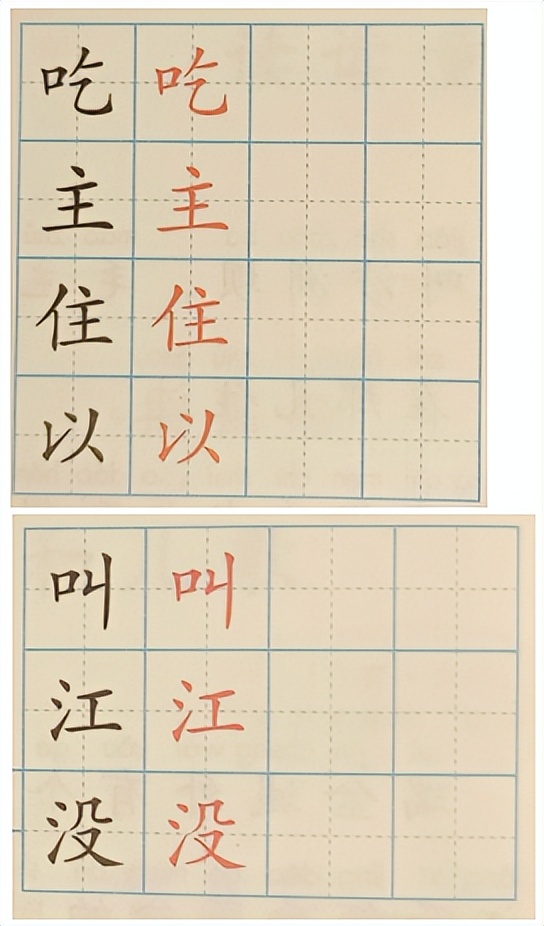 吃 吃
主 主
住 住
以 以
叫 叫
江 江
没 没